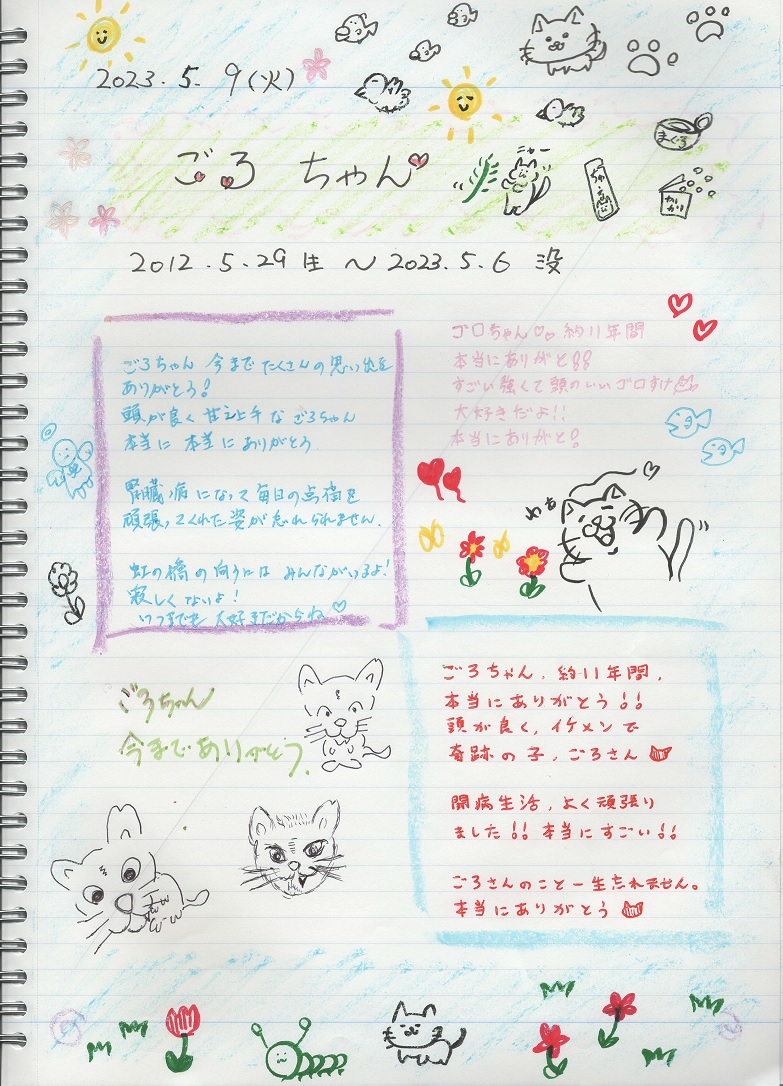 2023.5.9(火)
ごろちゃん
ニャー
まぐろ
ちゅ〜る
かりかり
2012.5.29生 〜 2023.5.6 没
ごろちゃん 今まで たくさんの思い出を
ありがとう!
頭が良く 甘え上手な ごろちゃん
本当に 本当に ありがとう
腎臓病になって毎日の点滴を
頑張ってくれた姿が忘れられません.
虹の橋の向うには みんながいるよ!
寂しくないよ!
いつまでも 大好きだからね♡
ゴロちゃん♡♡ 約11年間
本当にありがと!!
すごい強くて頭のいいゴロすけ
大好きだよ!!
本当にありがと!
ごろちゃん
今までありがとう.
ごろちゃん、約11年間、
本当にありがとう!!
頭が良く、イケメンで
奇跡の子、ごろさん
闘病生活、よく頑張り
ました!! 本当にすごい!!
ごろさんのこと一生忘れません。
本当にありがとう